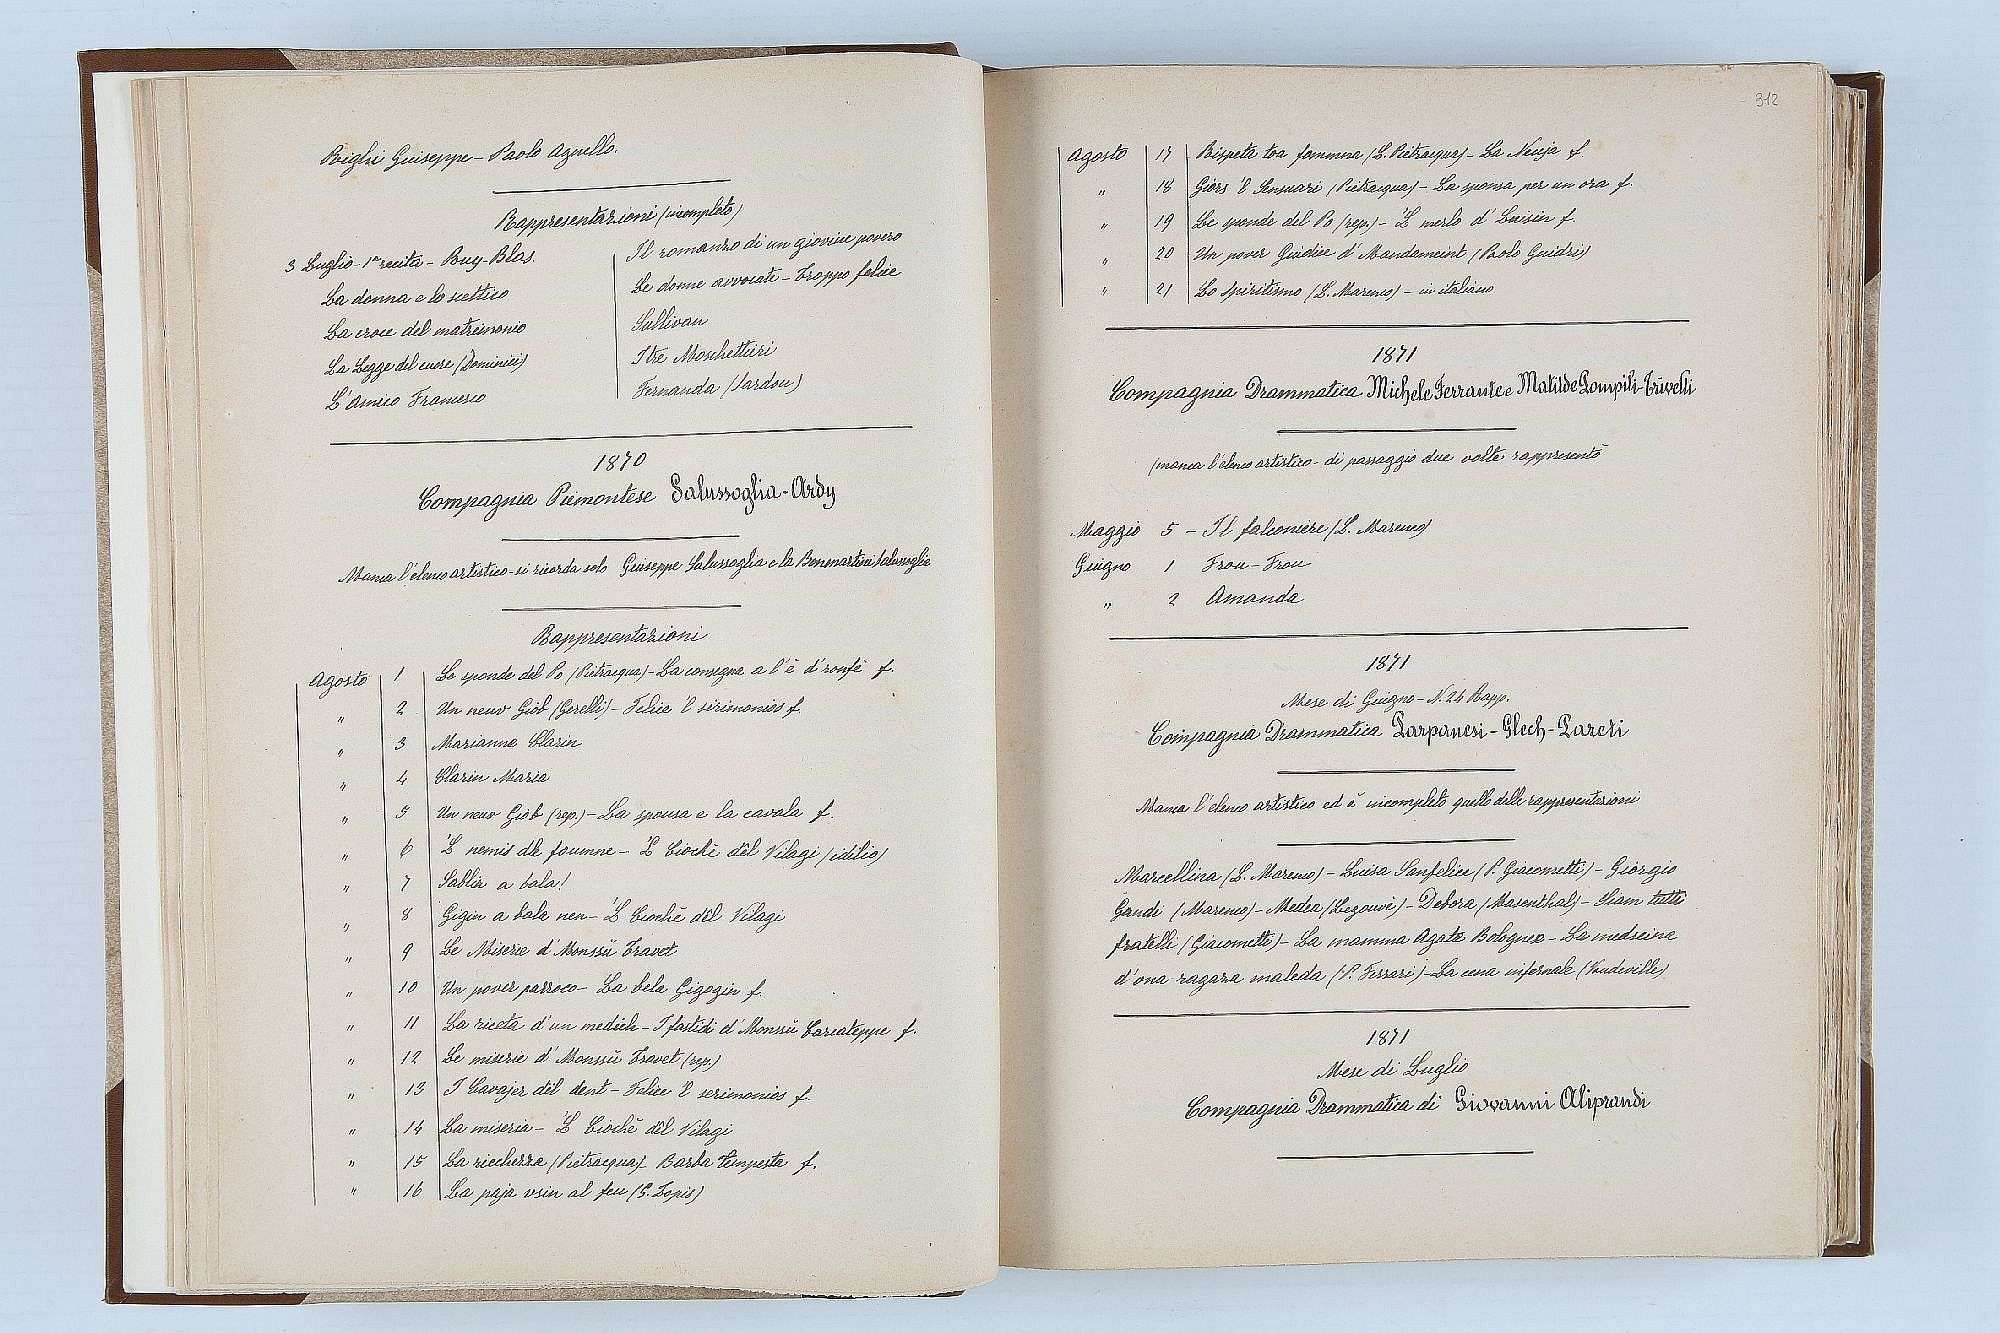 Righi Giuseppe - Paolo Agnello.
Rappresentazioni (incompleto)
3 Luglio 1ª recita - Ruy-Blas.
La donna e lo scettico
La croce del matrimonio
La Legge del cuore (Dominici)
L'Amico Francesco
Il romanzo di un giovine povero
Le donne avvocati - Troppo felice
Sullivan
I tre Moschettieri
Fernanda (Sardou)
1870
Compagnia Piemontese Salussoglia-Ardy
Manca l'elenco artistico - si ricorda solo Giuseppe Salussoglia e la Bonmartini Salussoglia
Rappresentazioni
Agosto 1 Le sponde del Po (Pietracqua) - La consegna a l'è d'ronfè f.
" 2 Un neuv Giòb (Gerelli) - Felice 'l sirimonios f.
" 3 Marianna Clarin
" 4 Clarin Maria
" 5 Un neuv Giòb (rep.) - La spousa e la cavala f.
" 6 'L nemis dle foumne - 'L Ciochè dël Vilagi (idilio)
" 7 Sablin a bala!
" 8 Gigin a bala nen - 'L Ciochè dël Vilagi
" 9 Le Miserie d' Monssù Travet
" 10 Un pover parroco - La bela Gigogin f.
" 11 La riceta d'un medich - I fastidi d' Monssù Carcateppe f.
" 12 Le miserie d' Monssù Travet (rep.)
" 13 I Cavajer dël dent - Felice 'l serimonios f.
" 14 La miseria - 'L Ciochè dël Vilagi
" 15 La richezza (Pietracqua) - Barba Tempesta f.
" 16 La paja vsin al feu (G. Zopis)
312
Agosto 17 Rispeta toa fommna (L. Pietracqua) - La Neuja f.
" 18 Giors 'l Sensuari (Pietracqua) - La sponsa per un ora f.
" 19 Le sponde del Po (rep.) - 'L merlo d' Luisin f.
" 20 Un pover Giudice d' Mandament (Paolo Guidri)
" 21 Lo spiritismo (L. Marenco) - in italiano
1871
Compagnia Drammatica Michele Ferrante e Matilde Pompili-Trivelli
(manca l'elenco artistico - di passaggio due volte rappresentò
Maggio 5 - Il falconiere (L. Marenco)
Giugno 1 Frou-Frou
" 2 Amanda
1871
Mese di Giugno - N. 24 Rapp.
Compagnia Drammatica Zarpanesi - Glech - Pareti
Manca l'elenco artistico ed è incompleto quello delle rappresentazioni
Marcellina (L. Marenco) - Luisa Sanfelice (P. Giacometti) - Giorgio
Gandi (Marenco) - Medea (Legouvè) - Debora (Mosenthal) - Siam tutti
fratelli (Giacometti) - La mamma Agata Bolognese - La medseina
d'ona ragaza maleda (P. Ferrari) - La cena infernale (Vaudeville)
1871
Mese di Luglio
Compagnia Drammatica di Giovanni Aliprandi